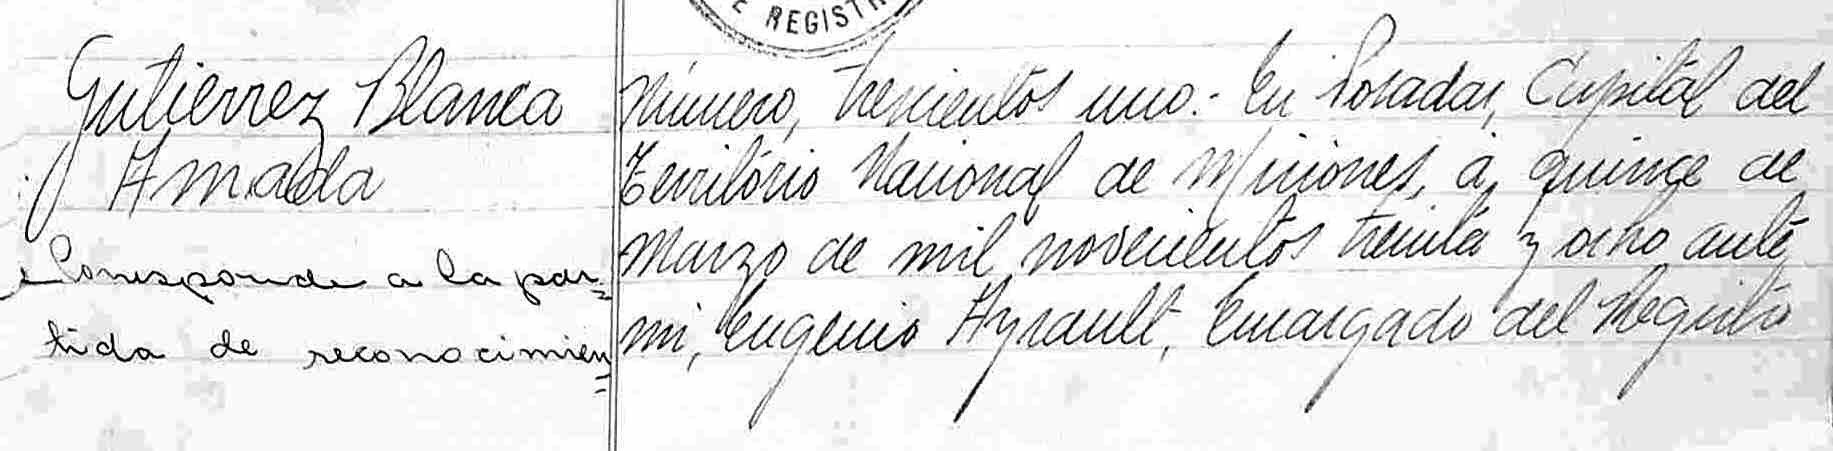 E REGISTR
Gutierrez Blanca
Amada
Corresponde a la par=
tida de reconocimien=
Número, trescientos uno.- En Posadas, Capital del
Território Nacional de Misiones, á, quince de
Marzo de mil novecientos treinta y ocho ante
mi, Eugenio Ayrault, Encargado del Registro